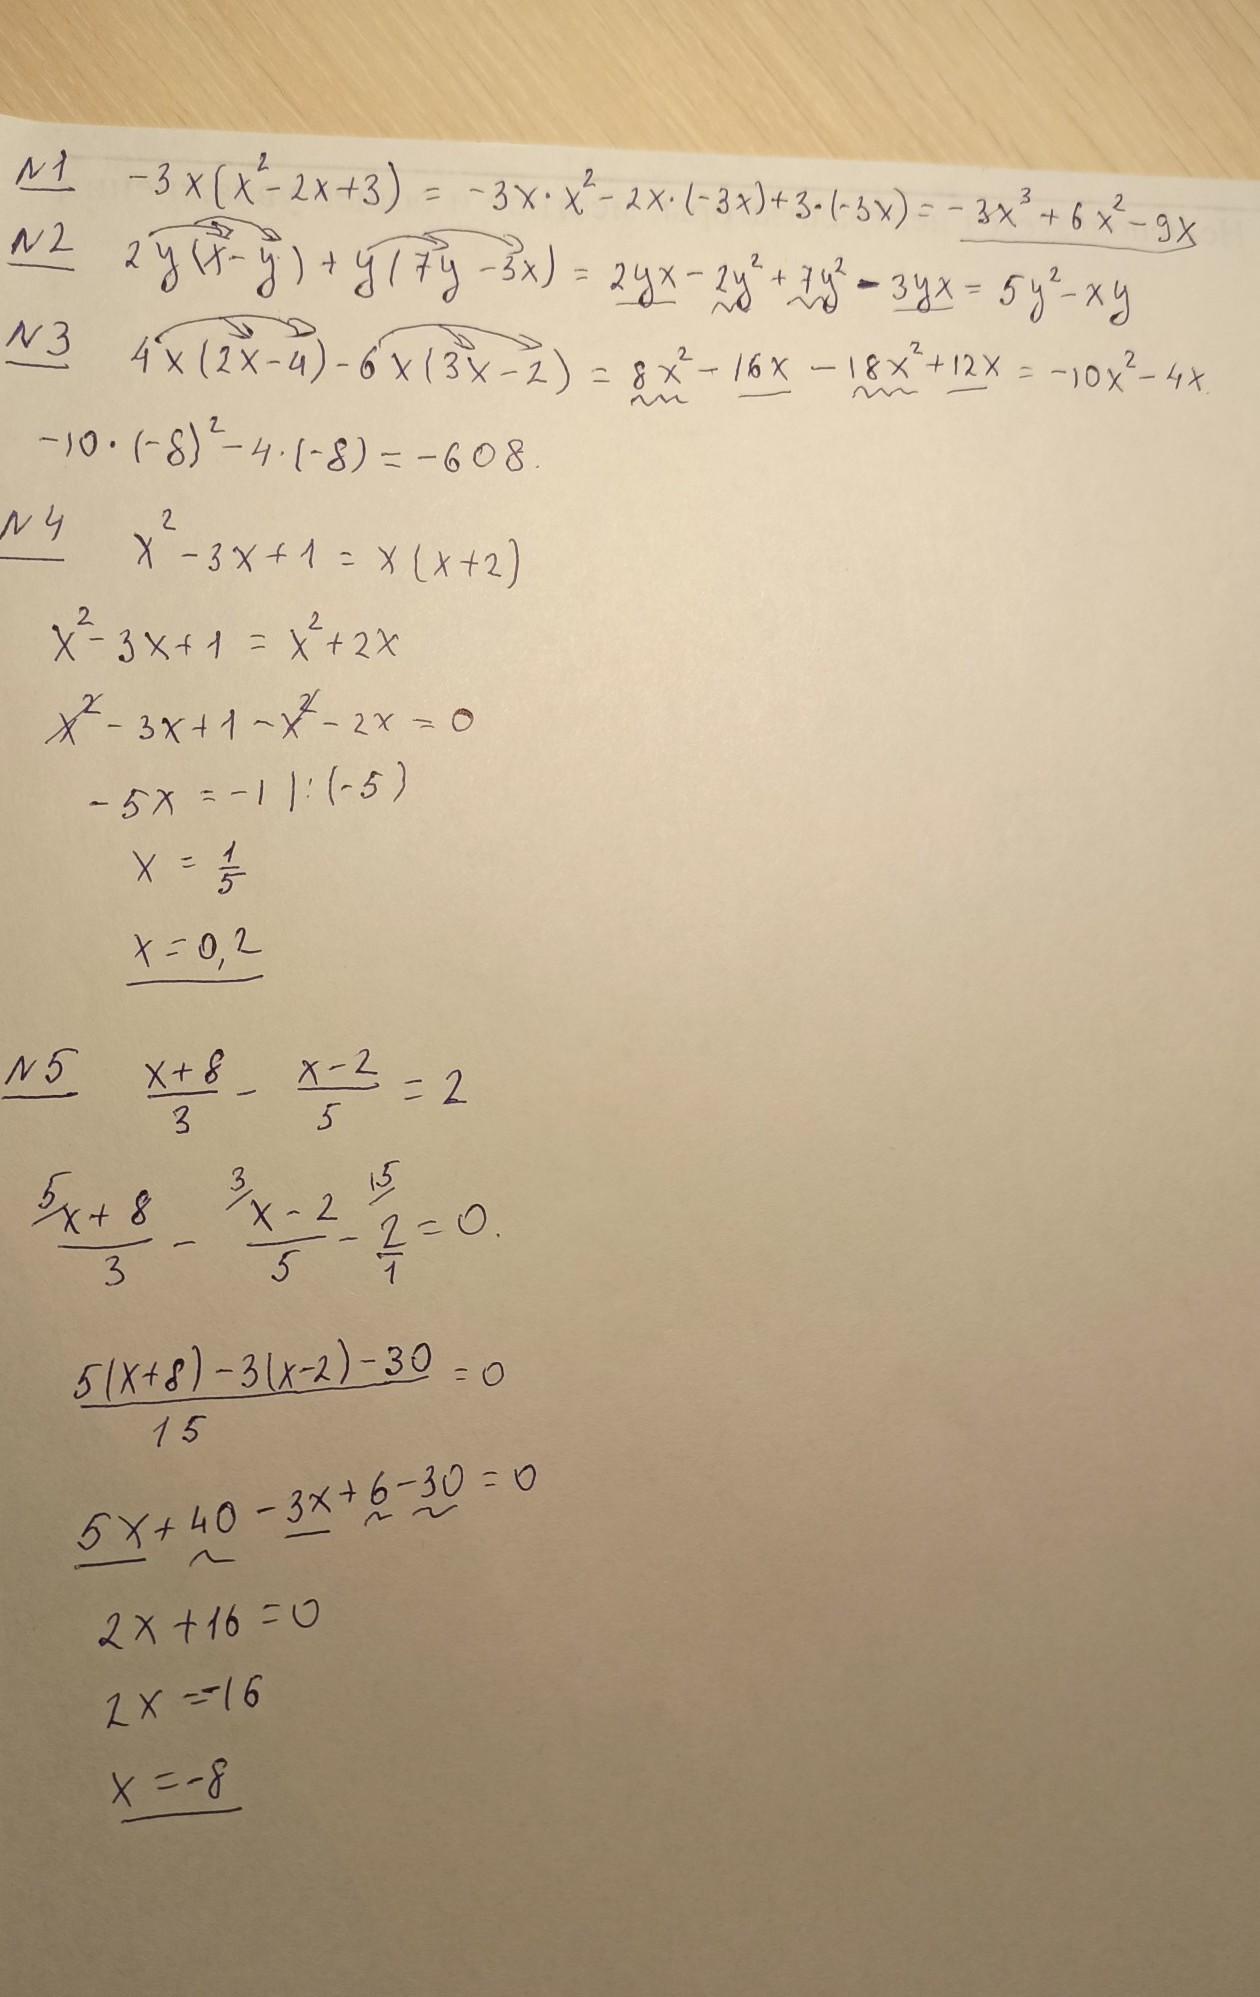 N1 -3x(x²-2x+3) = -3x·x²-2x·(-3x)+3·(-3x)=-3x³+6x²-9x
N2 2y(x-y)+y(7y-3x) = 2yx-2y²+7y²-3yx=5y²-xy
N3 4x(2x-4)-6x(3x-2) = 8x²-16x-18x²+12x=-10x²-4x.
-10·(-8)²-4·(-8)=-608.
N4 x²-3x+1=x(x+2)
x²-3x+1=x²+2x
x²-3x+1-x²-2x=0
-5x=-1 |:(-5)
x=1/5
x=0,2
N5 (x+8)/3 - (x-2)/5 = 2
5/ (x+8)/3 - 3/ (x-2)/5 - 15/ 2/1 = 0.
(5(x+8)-3(x-2)-30)/15 = 0
5x+40-3x+6-30=0
2x+16=0
2x=-16
x=-8